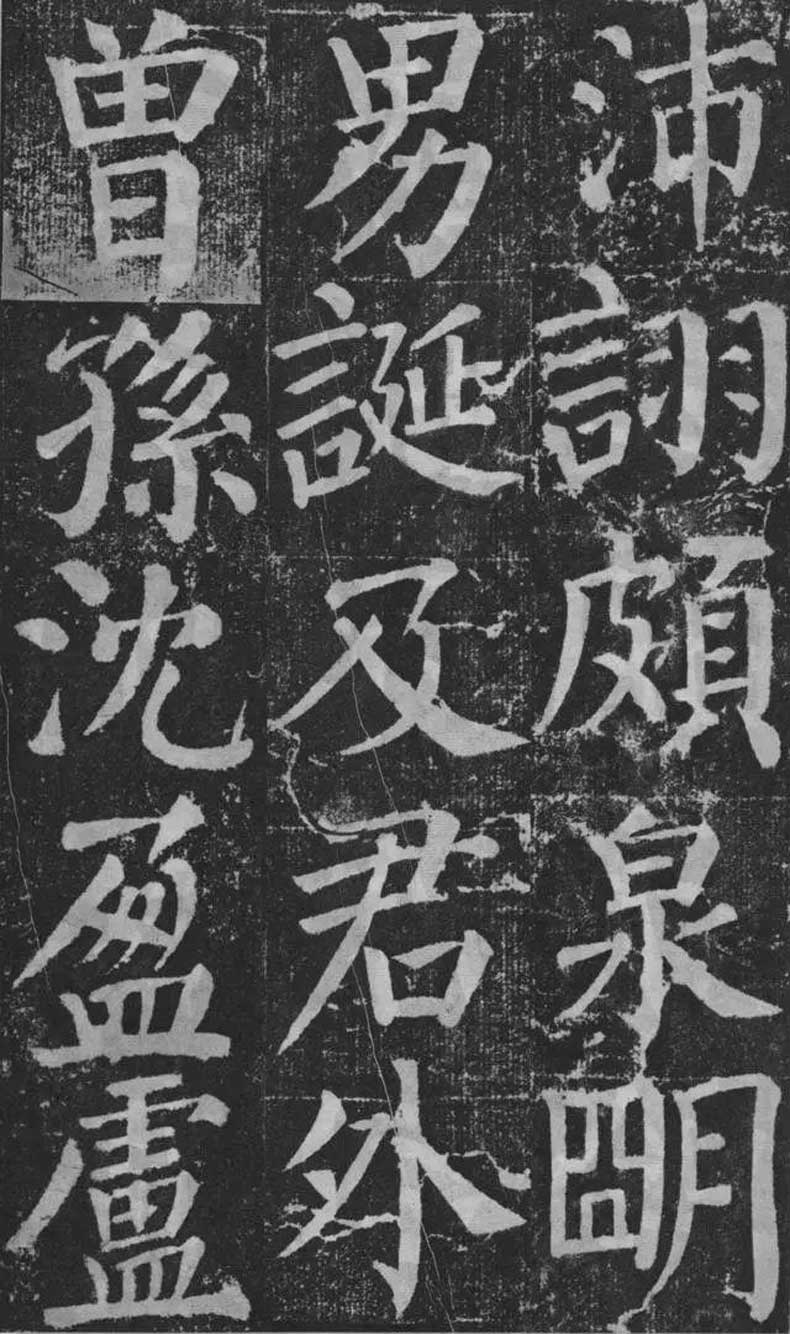 沛詡頗泉明
男誕及君外
曽孫沈盈盧